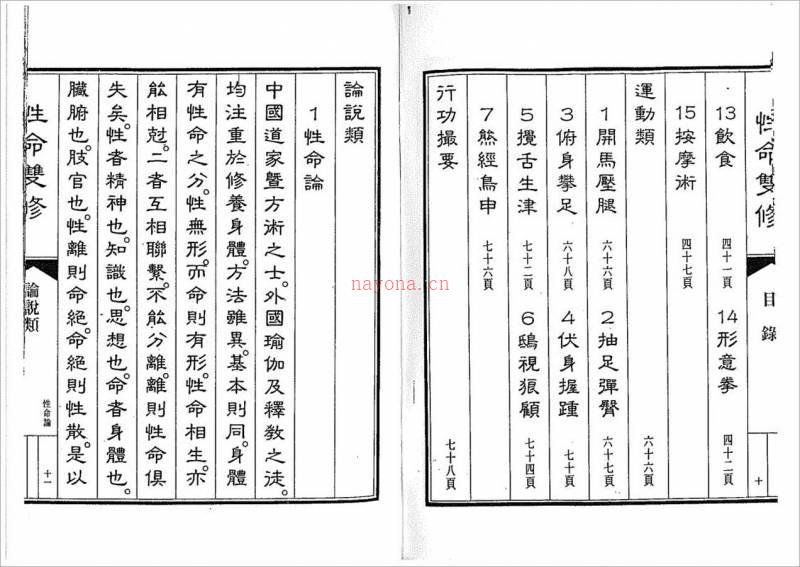 性命雙修
目錄
十
13飲食 四十一頁 14形意拳 四十二頁
15按摩術 四十七頁
運動類 六十六頁
1開馬壓腿 六十六頁 2抽足彈臀 六十七頁
3俯身攀足 六十八頁 4伏身握踵 七十頁
5攪舌生津 七十二頁 6鴟視狼顧 七十四頁
7熊經鳥申 七十六頁
行功撮要 七十八頁
論說類
1性命論
中國道家暨方術之士。外國瑜伽及釋教之徒。
均注重於修養身體。方法雖異。基本則同。身體
有性命之分。性無形。而命則有形。性命相生。亦
能相尅。二者互相聯繫。不能分離。離則性命俱
失矣。性者精神也。知識也。思想也。命者身體也。
臟腑也。肢官也。性離則命絕。命絕則性散。是以
性命雙修
論說類
性命論
十一
nayona.cn